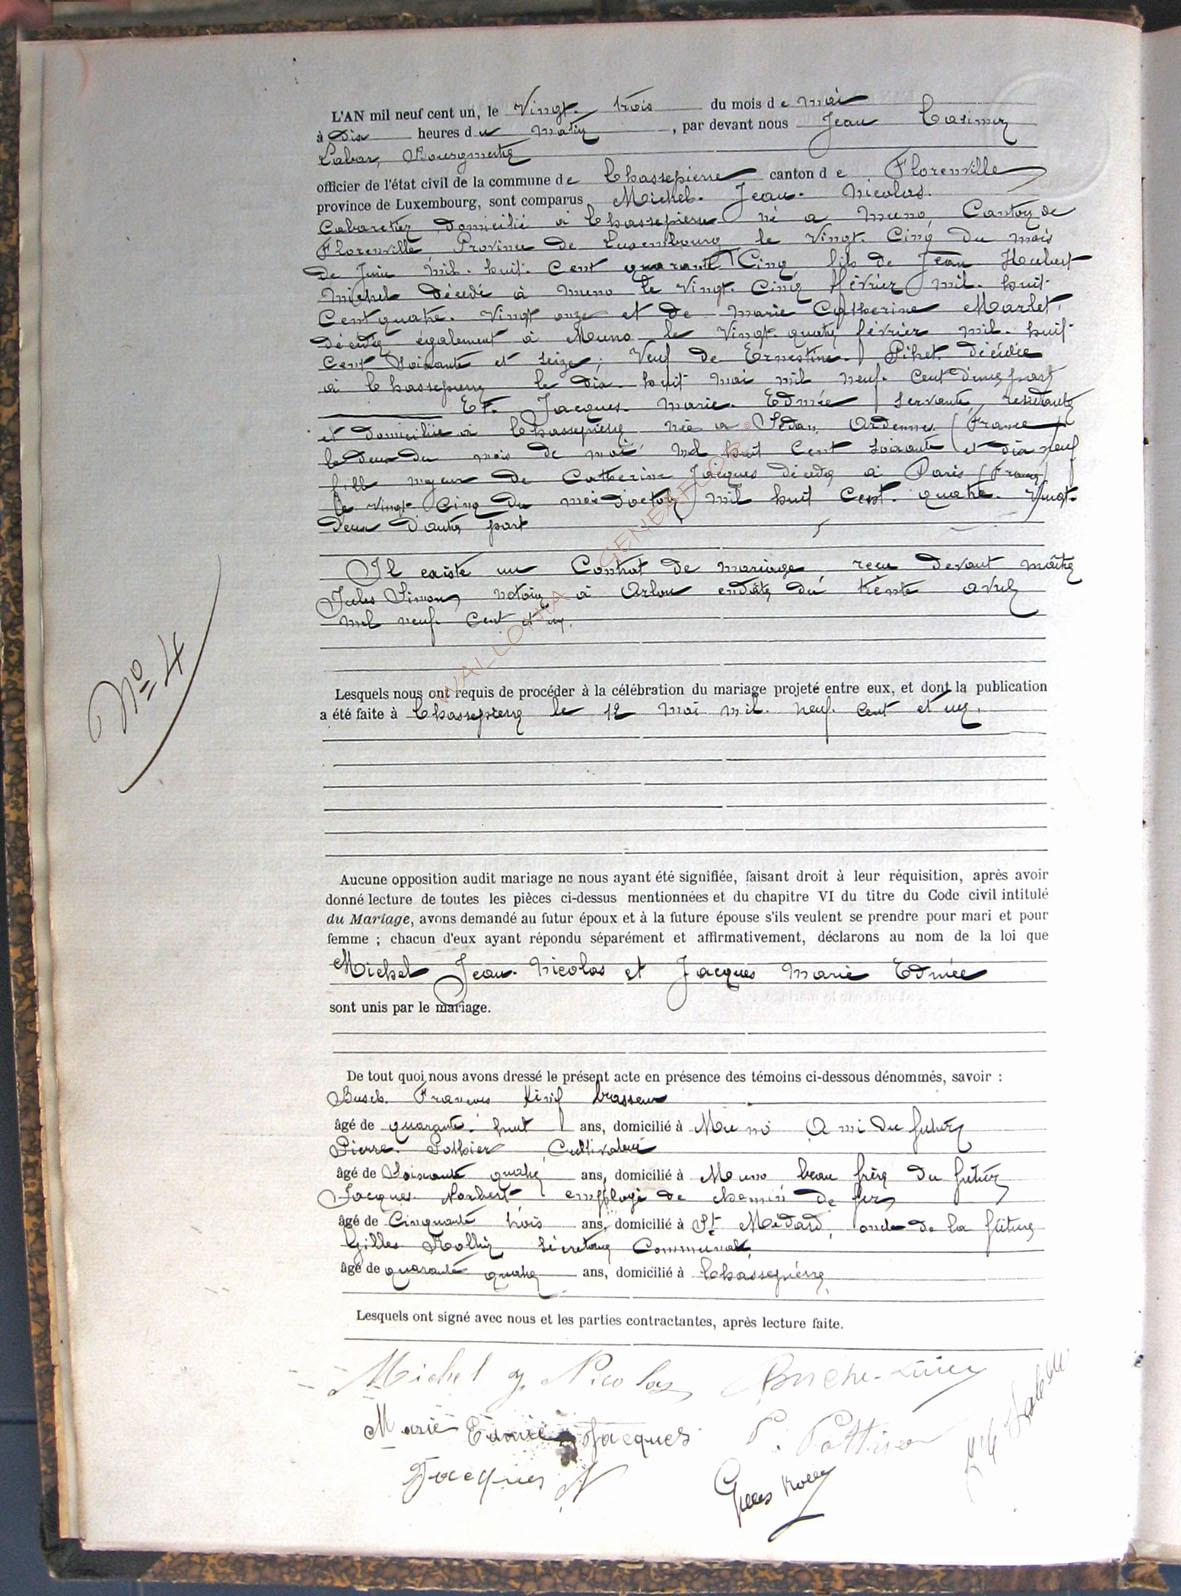 L'AN mil neuf cent un, le Vingt-trois du mois de mai
à dix heures du matin, par devant nous Jean Casimir
Labar, Bourgmestre
officier de l'état civil de la commune de Chassepierre canton de Florenville
province de Luxembourg, sont comparus Michel Jean-Nicolas
Cabaretier domicilié à Chassepierre né à Muno, Canton de
Florenville, Province de Luxembourg le Vingt-Cinq du mois
de Juin mil-huit-Cent quarante Cinq, fils de Jean Hubert
Michel décédé à Muno le Vingt-Cinq février mil-huit-
Cent quatre-Vingt onze et de Marie Catherine Marlet,
décédée également à Muno le Vingt-quatre février mil-huit-
Cent Soixante et Seize; Veuf de Ernestine Pihet décédée
à Chassepierre le dix-huit mai mil neuf-Cent d'une part
Et Jacques Marie Edmée, servante, résidante
et domiciliée à Chassepierre née à Sedan, Ardennes (France)
le deux du mois de mai mil huit Cent soixante et dix neuf
fille majeure de Catherine Jacques décédée à Paris (France)
le vingt Cinq du mois d'octobre mil huit Cent-quatre-Vingt-
deux d'autre part
Il existe un Contrat de mariage reçu devant maître
Jules Simon, notaire à Arlon en date du trente avril
mil neuf Cent et un.
N° 4
Lesquels nous ont requis de procéder à la célébration du mariage projeté entre eux, et dont la publication
a été faite à Chassepierre le 12 mai mil-neuf-cent et un.
Aucune opposition audit mariage ne nous ayant été signifiée, faisant droit à leur réquisition, après avoir
donné lecture de toutes les pièces ci-dessus mentionnées et du chapitre VI du titre du Code civil intitulé
du Mariage, avons demandé au futur époux et à la future épouse s'ils veulent se prendre pour mari et pour
femme ; chacun d'eux ayant répondu séparément et affirmativement, déclarons au nom de la loi que
Michel Jean-Nicolas et Jacques Marie Edmée
sont unis par le mariage.
De tout quoi nous avons dressé le présent acte en présence des témoins ci-dessous dénommés, savoir :
François brasseur
âgé de quarante-huit ans, domicilié à Muno Ami du futur
Pierre Pothier, Cultivateur
âgé de Soixante quatre ans, domicilié à Muno beau frère du futur
Jacques Norbert, employé de chemin de fer
âgé de Cinquante trois ans, domicilié à St Médard, oncle de la future
Gilles Rollin Secrétaire Communal
âgé de quarante quatre ans, domicilié à Chassepierre
Lesquels ont signé avec nous et les parties contractantes, après lecture faite.
Michel J Nicolas
Marie Edmée Jacques
P. Pothier
Jacques N
Gilles Rollin
WALLONIA GENEAFOR